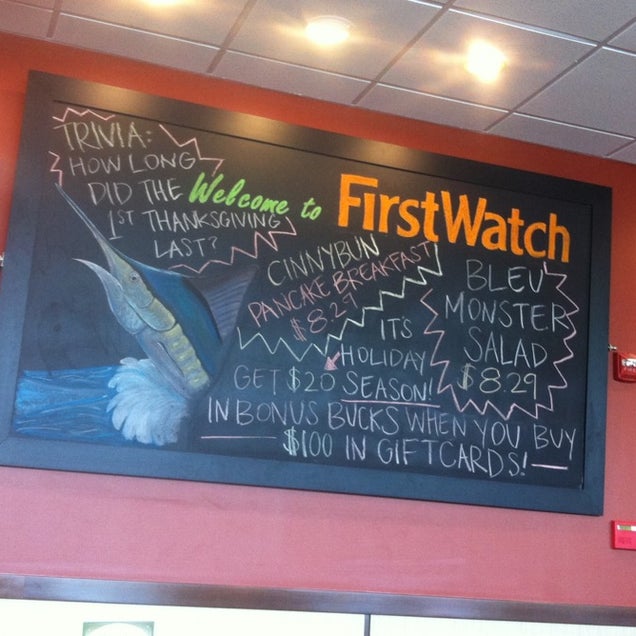 TRIVIA:
HOW LONG
DID THE
1ST THANKSGIVING
LAST?
Welcome to
FirstWatch
CINNYBUN
PANCAKE BREAKFAST
$8.29
BLEU
MONSTER
SALAD
$8.29
IT'S
HOLIDAY
SEASON!
GET $20
IN BONUS BUCKS WHEN YOU BUY
$100 IN GIFTCARDS!